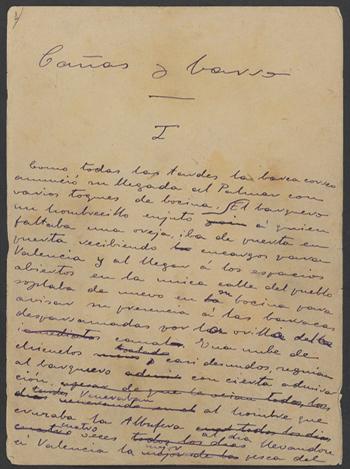 Cañas y barro
I
Como todas las tardes la barca correo
anunció su llegada al Palmar con
varios toques de bocina. El barquero
un hombrecillo enjuto á quien
faltaba una oreja, iba de puerta en
puerta recibiendo encargos para
Valencia y al llegar á los espacios
abiertos en la unica calle del pueblo
soplaba de nuevo en la bocina para
avisar su presencia á las barracas
desparramadas por la orilla del
canal. Una nube de
chicuelos casi desnudos, seguian
al barquero con cierta admira
ción.
al hombre que
cruzaba la Albufera
cuatro veces al dia llevandose
á Valencia la mejor pesca del